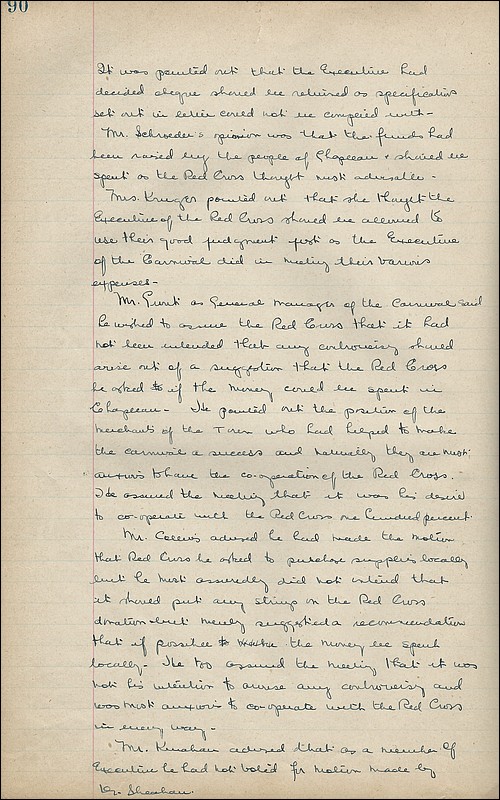 90
It was pointed out that the Executive had
decided cheque should be returned as specifications
set out in letter could not be complied with -
Mr. Schroeder's opinion was that the funds had
been raised by the people of Chapeau & should be
spent as the Red Cross thought most advisable -
Mrs. Kruger pointed out that she thought the
Executive of the Red Cross should be allowed to
use their good judgment just as the Executive
of the Carnival did in meeting their various
expenses -
Mr. as General Manager of the Carnival said
he wished to assure the Red Cross that it had
not been intended that any controversy should
arise out of a suggestion that the Red Cross
be asked to if the money could be spent in
Chapeau - He pointed out the position of the
merchants of the Town who had helped to make
the carnival a success and naturally they are most
anxious to have the co-operation of the Red Cross.
He assured the meeting that it was his desire
to co-operate with the Red Cross one hundred percent.
Mr. Collins advised he had made the motion
that Red Cross be asked to purchase supplies locally
but he most assuredly did not intend that
it should put any strings on the Red Cross
donation but merely suggested a recommendation
that if possible to the money be spent
locally - He too assured the meeting that it was
not his intention to arouse any controversy and
was most anxious to co-operate with the Red Cross
in every way -
Mr. Kinahan advised that as a member of
Executive he had not voted for motion made by
Dr. Sheahan.